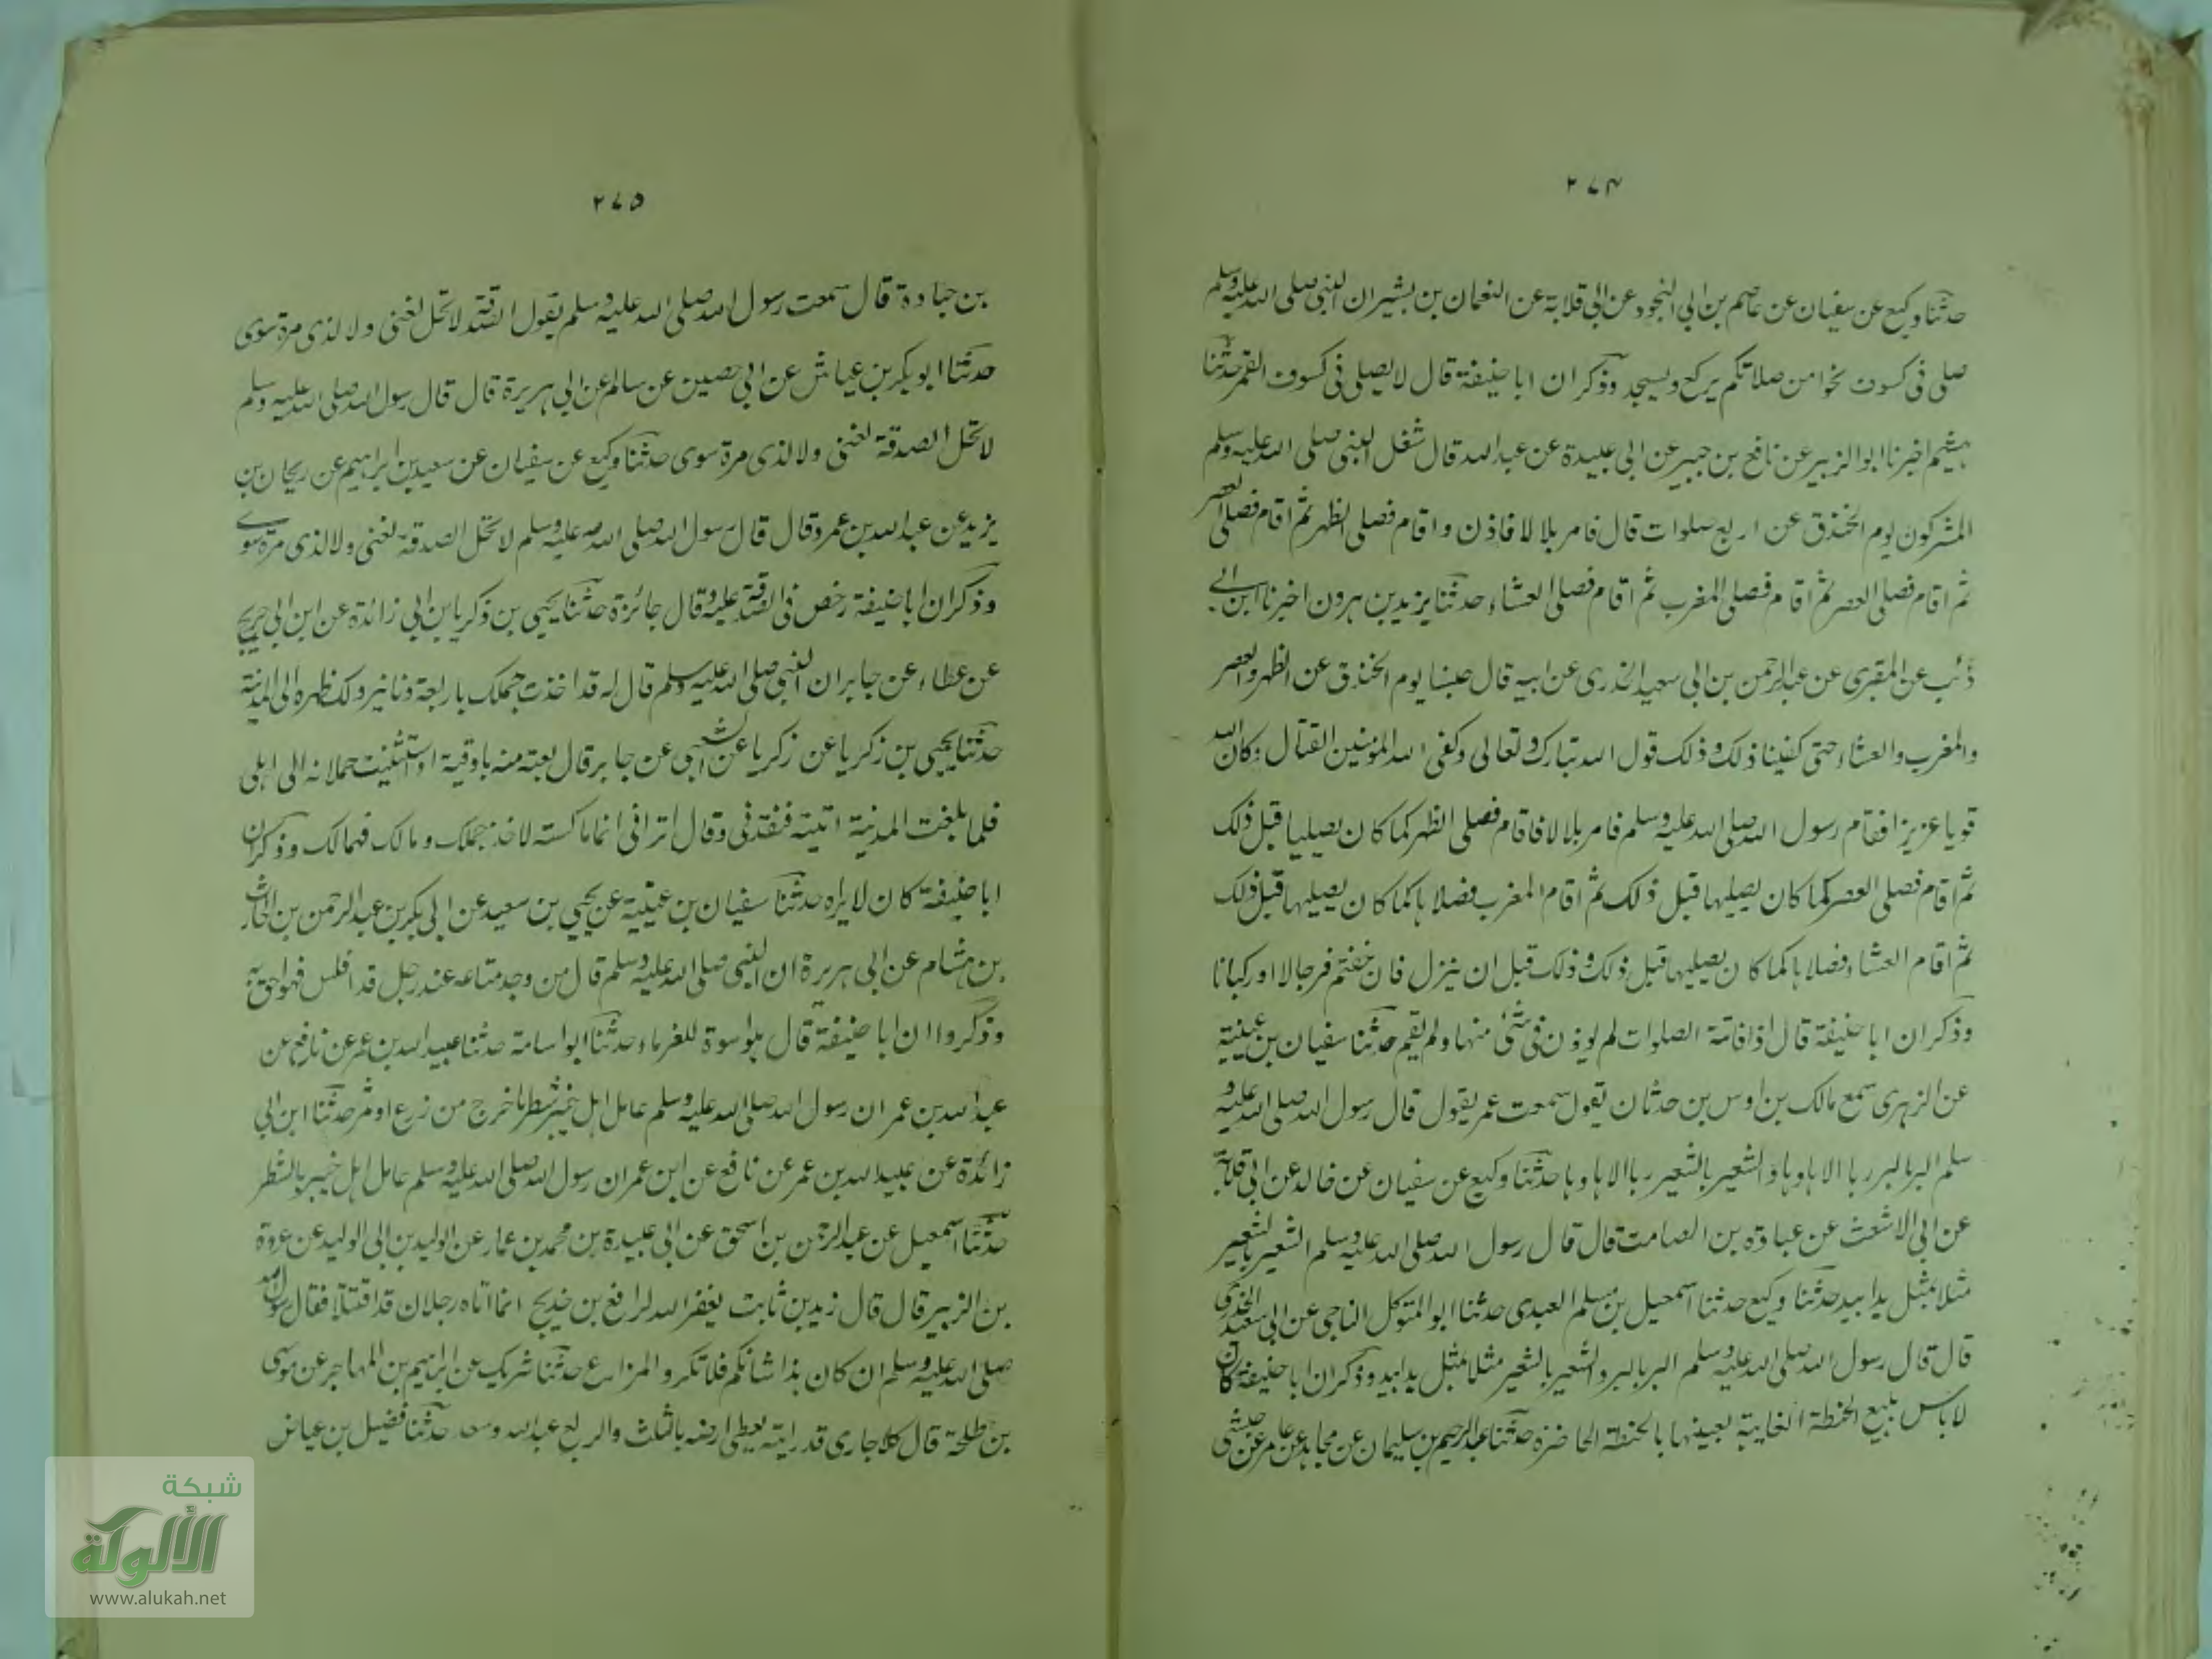 ٢٧٤
حدثنا وكيع عن سفيان عن عاصم بن ابى النجود عن ابى قلابة عن النعمان بن بشير ان النبى صلى الله عليه وسلم
صلى فى كسوف نحوا من صلاتكم يركع ويسجد وذكر ان ابا حنيفة قال لا يصلى فى كسوف القمر حدثنا
هشيم اخبرنا ابو الزبير عن نافع بن جبير عن ابى عبيدة عن عبد الله قال شغل النبى صلى الله عليه وسلم
المشركون يوم الخندق عن اربع صلوات قال فامر بلالا فاذن واقام فصلى الظهر ثم اقام فصلى العصر
ثم اقام فصلى العصر ثم اقام فصلى المغرب ثم اقام فصلى العشاء حدثنا يزيد بن هرون اخبرنا ابن ابى
ذئب عن المقبرى عن عبد الرحمن بن ابى سعيد الخدرى عن ابيه قال حبسنا يوم الخندق عن الظهر والعصر
والمغرب والعشاء حتى كفينا ذلك وذلك قول الله تبارك وتعالى وكفى الله المؤمنين القتال وكان الله
قويا عزيزا فقام رسول الله صلى الله عليه وسلم فامر بلالا فاقام فصلى الظهر كما كان يصليها قبل ذلك
ثم اقام فصلى العصر كما كان يصليها قبل ذلك ثم اقام المغرب فصلاها كما كان يصليها قبل ذلك
ثم اقام العشاء فصلاها كما كان يصليها قبل ذلك وذلك قبل ان ينزل فان خفتم فرجالا او ركبانا
وذكر ان ابا حنيفة قال اذا فاتته الصلوات لم يوذن فى شئ منها ولم يقم حدثنا سفيان بن عيينة
عن الزهرى سمع مالك بن اوس بن حدثان يقول سمعت عمر يقول قال رسول الله صلى الله عليه و
سلم البر بالبر ربا الا ها وها والشعير بالشعير ربا الا ها وها حدثنا وكيع عن سفيان عن خالد عن ابى قلابة
عن ابى الاشعث عن عبادة بن الصامت قال قال رسول الله صلى الله عليه وسلم الشعير بالشعير
مثلا بمثل يدا بيد حدثنا وكيع حدثنا اسمعيل بن مسلم العبدى حدثنا ابو المتوكل الناجى عن ابى سعيد الخدرى
قال قال رسول الله صلى الله عليه وسلم البر بالبر والشعير بالشعير مثلا بمثل يدا بيد وذكر ان ابا حنيفة كان
لا باس ببيع الحنطة الغايبة بعينها بالحنطة الحاضرة حدثنا عبد الرحيم بن سليمان عن مجالد عن عامر عن حبشى
٢٧٥
بن جنادة قال سمعت رسول الله صلى الله عليه وسلم يقول الصدقة لا تحل لغنى ولا لذى مرة سوى
حدثنا ابو بكر بن عياش عن ابى حصين عن سالم عن ابى هريرة قال قال رسول الله صلى الله عليه وسلم
لا تحل الصدقة لغنى ولا لذى مرة سوى حدثنا وكيع عن سفيان عن سعيد بن ابراهيم عن ريحان بن
يزيد عن عبد الله بن عمرو قال قال رسول الله صلى الله عليه وسلم لا تحل الصدقة لغنى ولا لذى مرة سوى
وذكر ان ابا حنيفة رخص فى الصدقة عليه وقال جائزة حدثنا يحيى بن ذكريا بن ابى زائدة عن ابن ابى جريج
عن عطاء عن جابر ان النبى صلى الله عليه وسلم قال له قد اخذت جملك باربعة دنانير ولك ظهره الى المدينة
حدثنا يحيى بن زكريا عن زكريا عن الشعبى عن جابر قال بعته منه باوقية واستثنيت حملانه الى اهلى
فلما بلغت المدينة اتيته فنقدنى وقال اترانى انما ماكستك لاخذ جملك ومالك فهمالك وذكر ان
ابا حنيفة كان لا يراه حدثنا سفيان بن عيينة عن يحيى بن سعيد عن ابى بكر بن عبد الرحمن بن الحارث
بن هشام عن ابى هريرة ان النبى صلى الله عليه وسلم قال من وجد متاعه عند رجل قد افلس فهو احق به
وذكروا ان ابا حنيفة قال هو اسوة للغرماء حدثنا ابو اسامة حدثنا عبيد الله بن عمر عن نافع عن
عبد الله بن عمر ان رسول الله صلى الله عليه وسلم عامل اهل خيبر بشطر ما خرج من زرع او ثمر حدثنا ابن ابى
زائدة عن عبيد الله بن عمر عن نافع عن ابن عمر ان رسول الله صلى الله عليه وسلم عامل اهل خيبر بالشطر
حدثنا اسمعيل عن عبد الرحمن بن اسحق عن ابى عبيدة بن محمد بن عمار عن الوليد بن ابى الوليد عن عروة
بن الزبير قال قال زيد بن ثابت يغفر الله لرافع بن خديج انما اتاه رجلان قد اقتتلا فقال رسول الله
صلى الله عليه وسلم ان كان هذا شانكم فلا تكروا المزارع حدثنا شريك عن ابراهيم بن المهاجر عن موسى
بن طلحة قال كلا جارى قد رايته يعطى ارضه بالثلث والربع عبد الله وسعد حدثنا فضيل بن عياض
شبكة
الألوكة
www.alukah.net